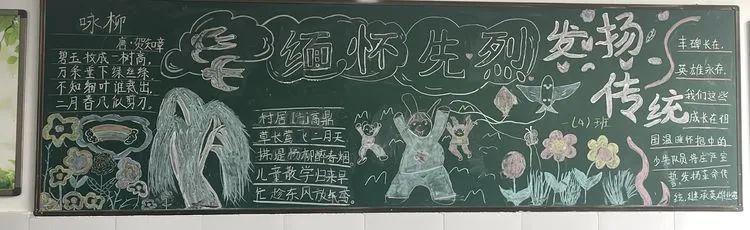 咏柳
唐·贺知章
碧玉妆成一树高,
万条垂下绿丝绦.
不知细叶谁裁出,
二月春风似剪刀.
缅怀先烈
村居 [清]高鼎
草长莺飞二月天
拂堤杨柳醉春烟
儿童散学归来早
忙趁东风放纸鸢
发扬
传统
(4)班
丰碑长在,
英雄永存,
我们这些
成长在祖
国温暖怀抱中的
少先队员
发扬革命传
统,继承英雄